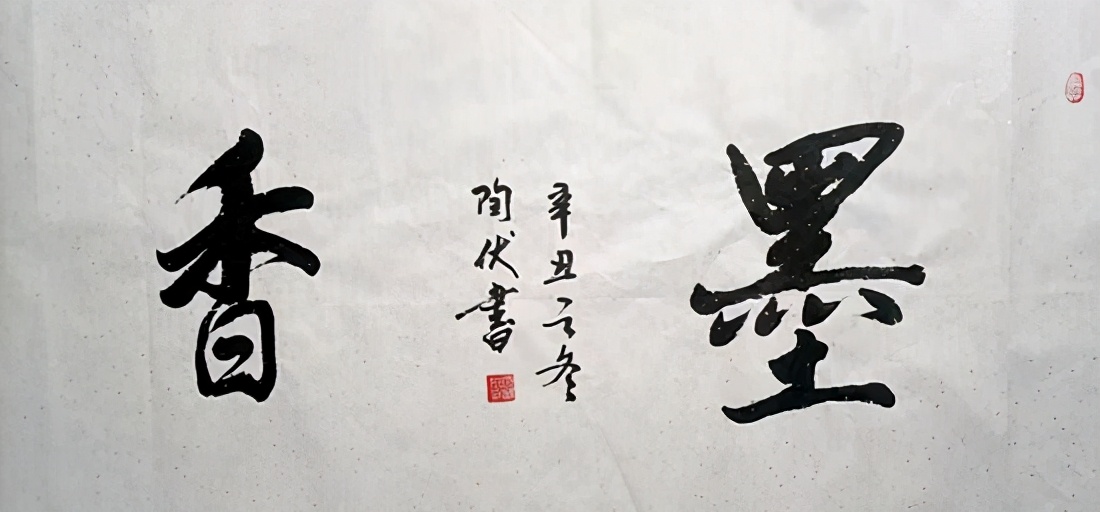 墨
辛丑之冬
陶伏書
香